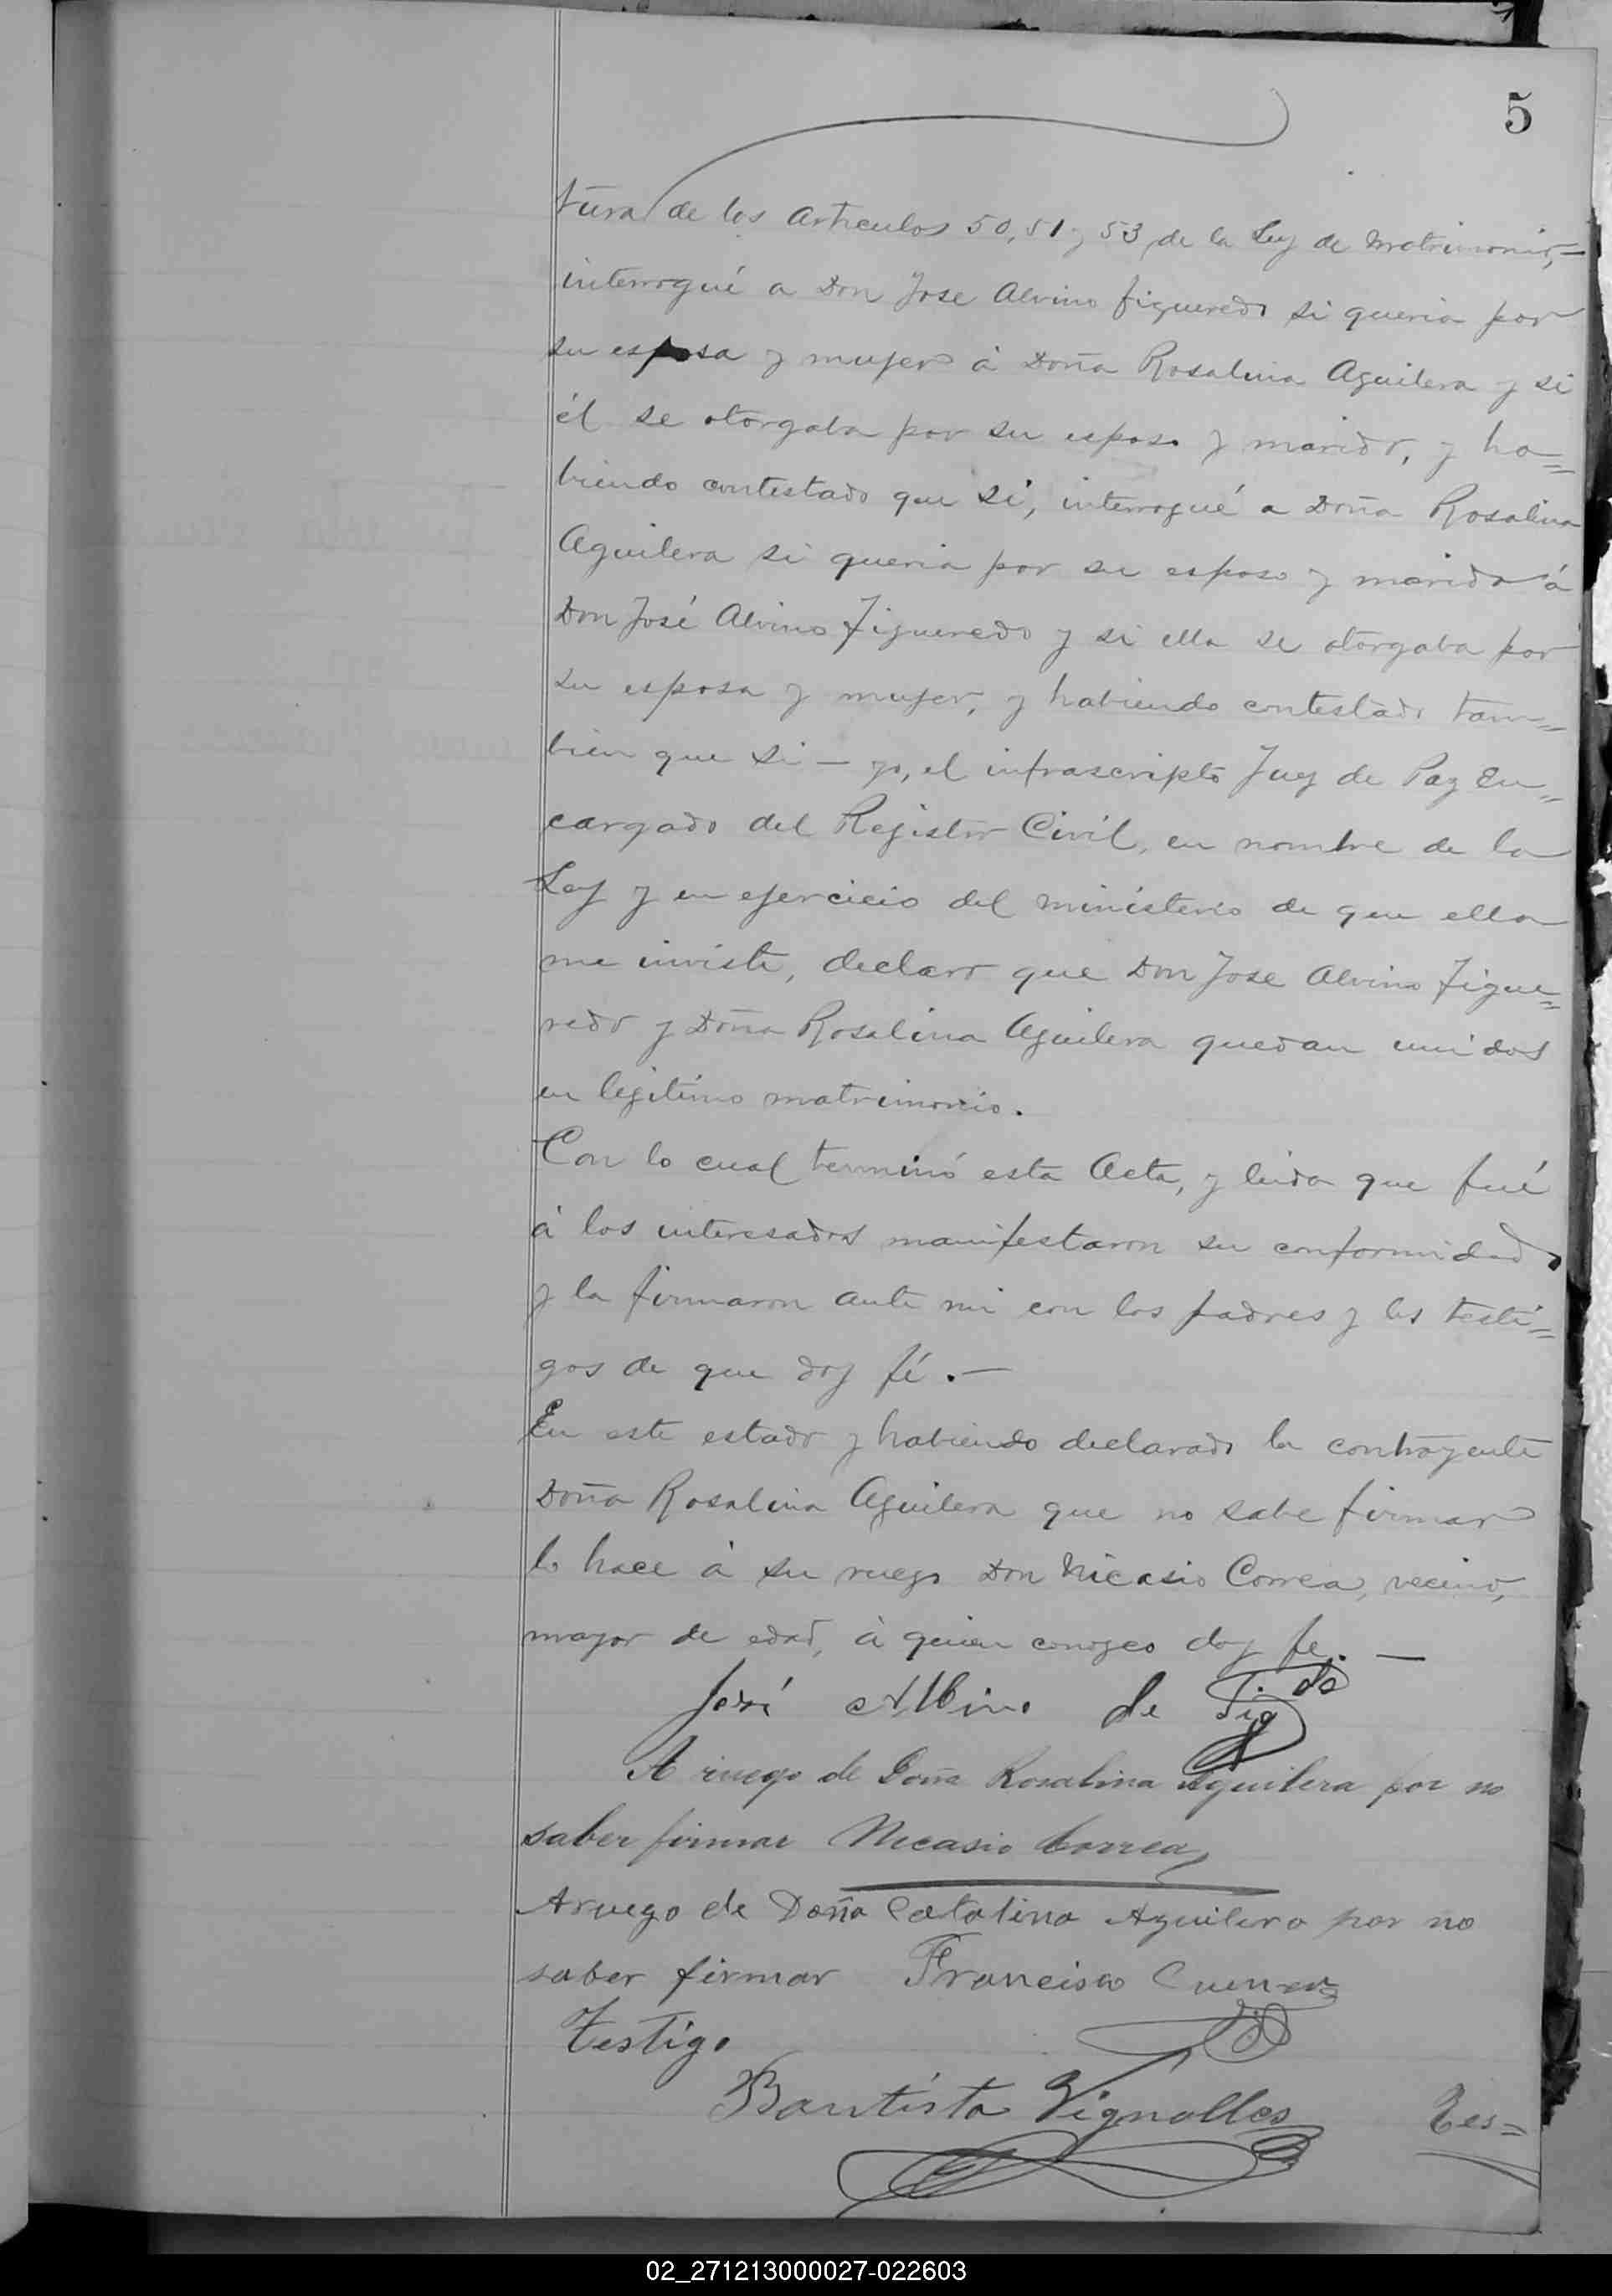 5
tura de los Articulos 50, 51 y 53 de la Ley de Matrimonio,—
interrogué a Don Jose Alvino figueredo si queria por
su esposa y mujer á Doña Rosalina Aguilera y si
él se otorgaba por su esposo y marido, y ha=
biendo contestado que si, interrogué a Doña Rosalina
Aguilera si queria por su esposo y marido á
Don José Alvino Figueredo y si ella se otorgaba por
su esposa y mujer, y habiendo contestado tam=
bien que si — yo, el infrascripto Juez de Paz En=
cargado del Registro Civil, en nombre de la
Ley y en ejercicio del ministerio de que ella
me inviste, declaro que Don Jose Alvino Figue=
redo y Doña Rosalina Aguilera quedan unidos
en legitimo matrimonio.
Con lo cual terminó esta Acta, y leida que fué
á los interesados manifestaron su conformidad
y la firmaron ante mi con los padres y los testi=
gos de que doy fé.—
En este estado y habiendo declarado la contrayente
Doña Rosalina Aguilera que no sabe firmar
lo hace á su ruego Don Nicasio Correa, vecino,
mayor de edad, á quien conozco doy fe. —
José Albino de Fig.do
A ruego de Doña Rosalina Aguilera por no
saber firmar Nicasio Correa
Aruego de Doña Catalina Aguilera por no
saber firmar Francisco Cuenca
Testigo
Bautista Vignolles
Tes=
02_271213000027-022603